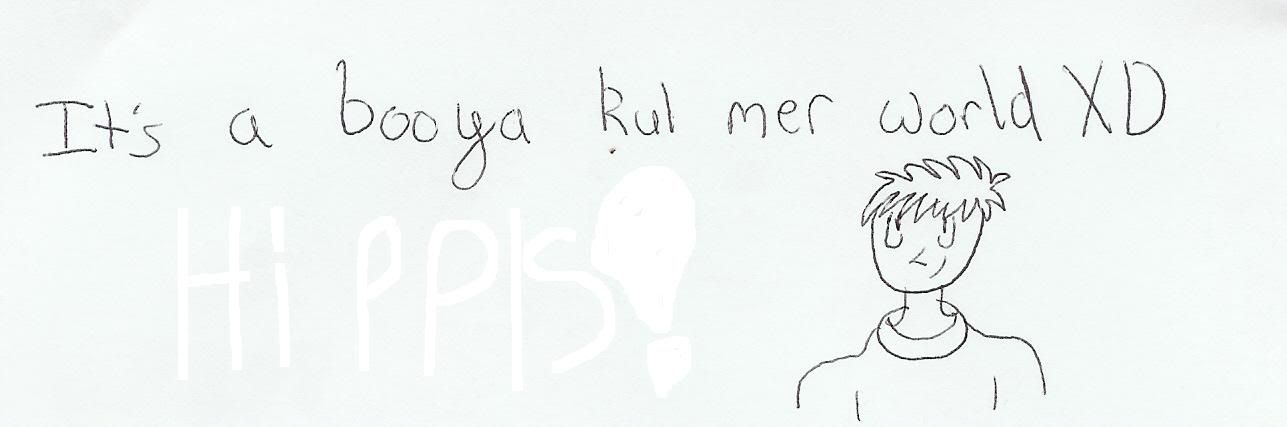 It's a booya kul mer world XD
Hi PPlS!